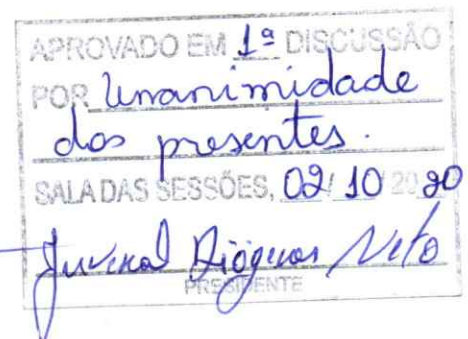 APROVADO EM 1ª DISCUSSÃO
POR Unanimidade
dos presentes.
SALA DAS SESSÕES, 02/10/2020
Juvenal Diógenes Neto
PRESIDENTE